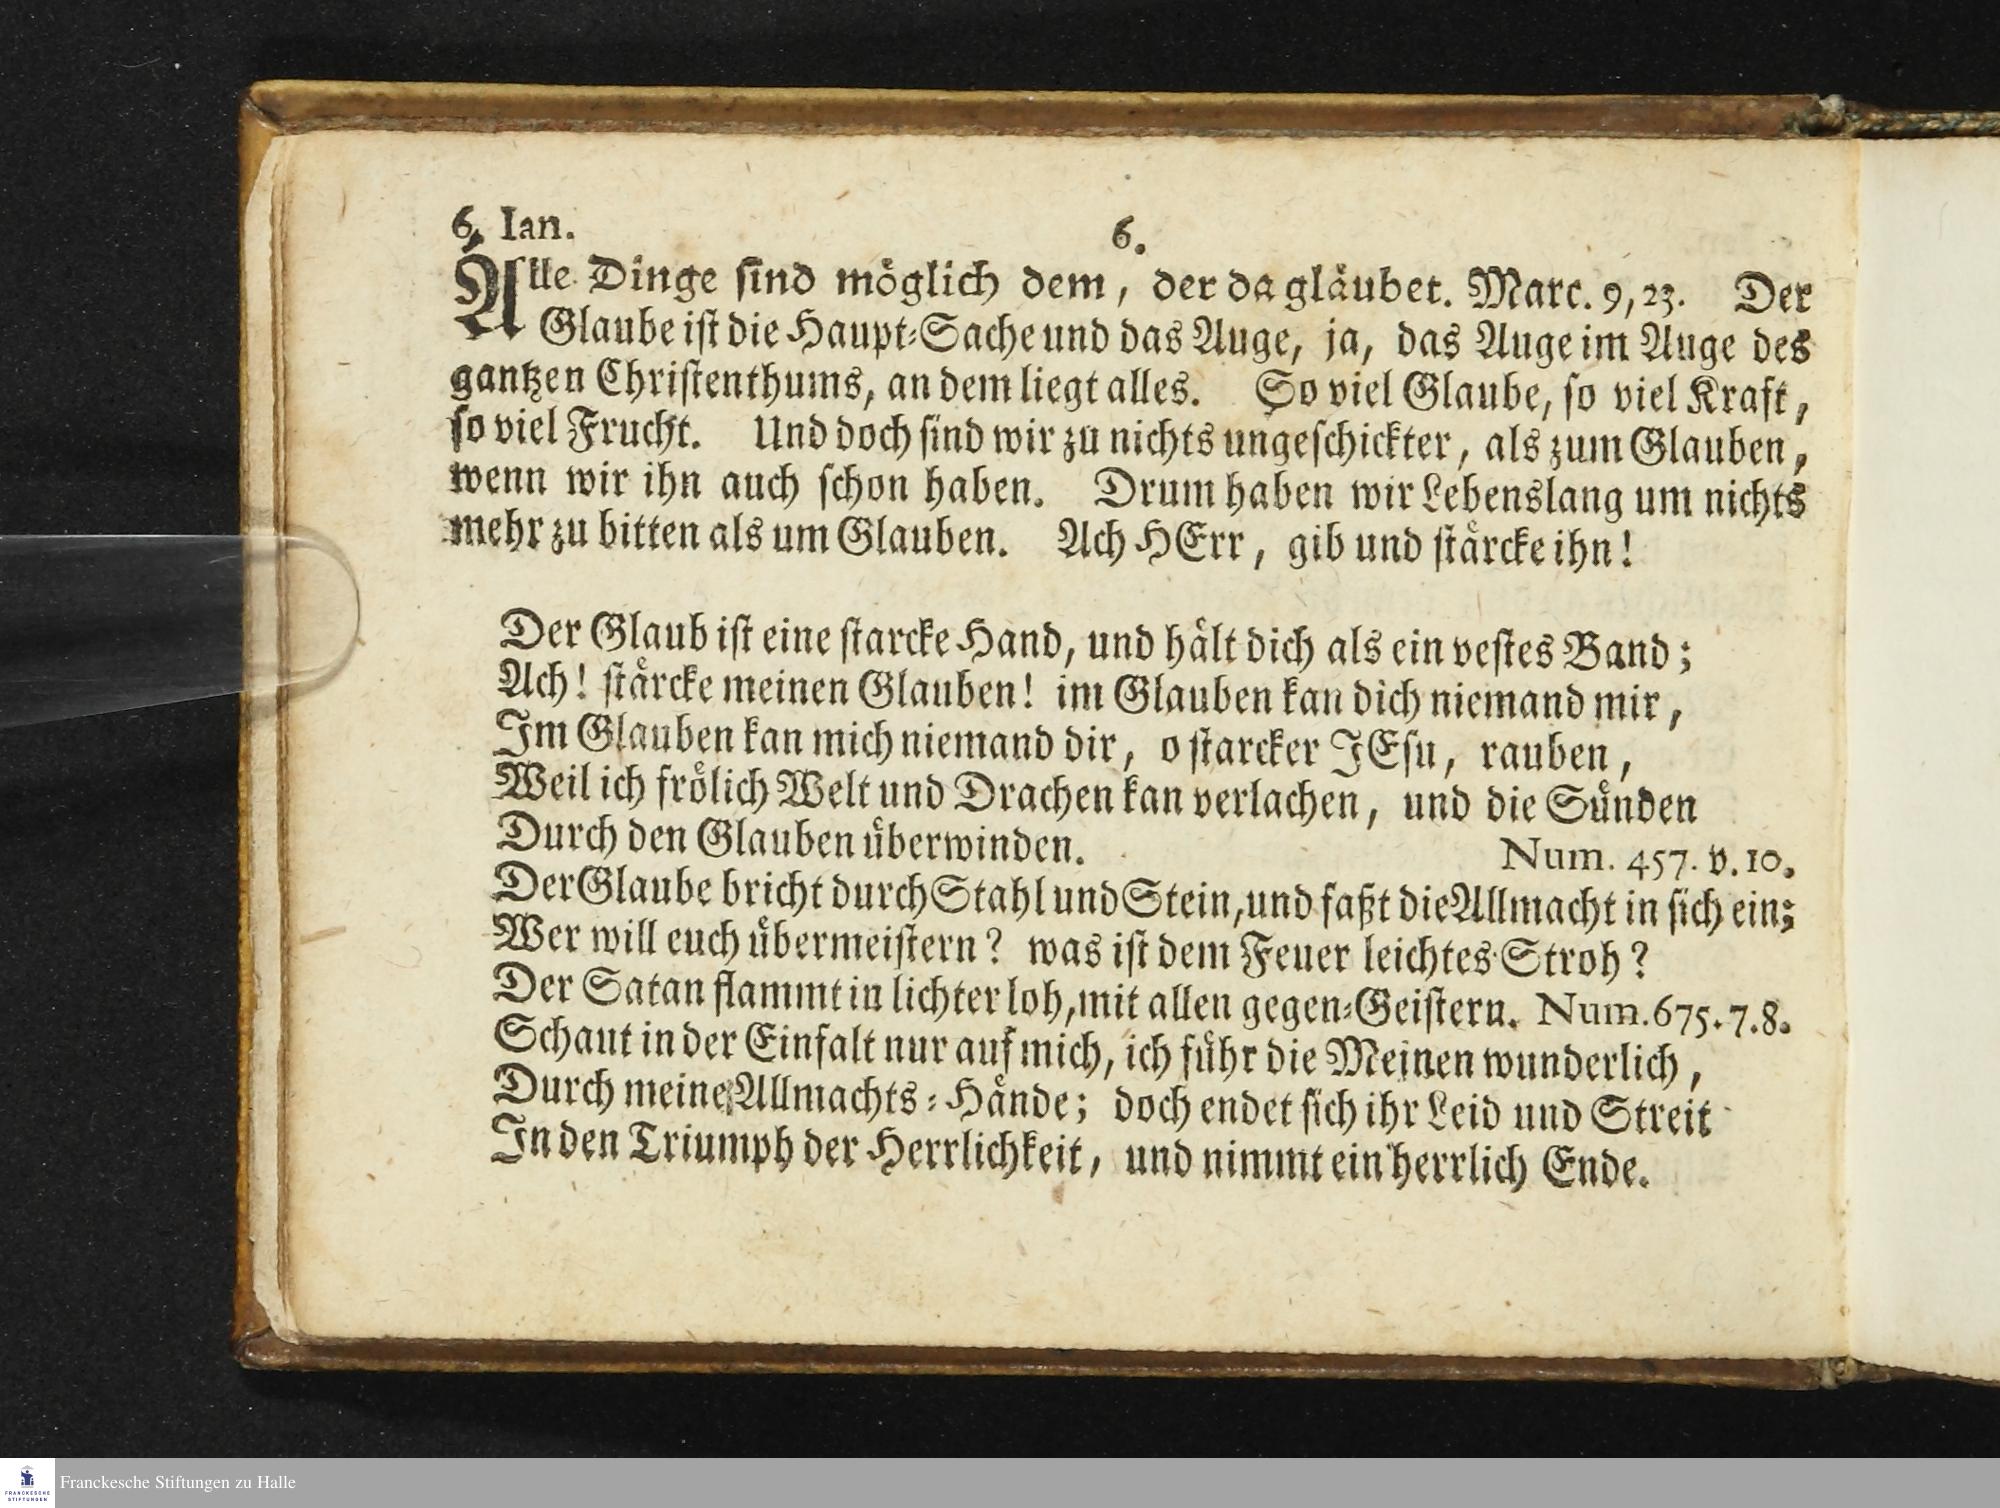 6. Ian.
6.
Alle Dinge sind möglich dem, der da gläubet. Marc. 9, 23. Der
Glaube ist die Haupt-Sache und das Auge, ja, das Auge im Auge des
gantzen Christenthums, an dem liegt alles. So viel Glaube, so viel Kraft,
so viel Frucht. Und doch sind wir zu nichts ungeschickter, als zum Glauben,
wenn wir ihn auch schon haben. Drum haben wir Lebenslang um nichts
mehr zu bitten als um Glauben. Ach HErr, gib und stärcke ihn!
Der Glaub ist eine starcke Hand, und hält dich als ein vestes Band;
Ach! stärcke meinen Glauben! im Glauben kan dich niemand mir,
Im Glauben kan mich niemand dir, o starcker JEsu, rauben,
Weil ich frölich Welt und Drachen kan verlachen, und die Sünden
Durch den Glauben überwinden. Num. 457. v. 10.
Der Glaube bricht durch Stahl und Stein, und faßt die Allmacht in sich ein;
Wer will euch übermeistern? was ist dem Feuer leichtes Stroh?
Der Satan flammt in lichter loh, mit allen gegen-Geistern. Num. 675. 7. 8.
Schaut in der Einfalt nur auf mich, ich führ die Meinen wunderlich,
Durch meine Allmachts-Hände; doch endet sich ihr Leid und Streit
In den Triumph der Herrlichkeit, und nimmt ein herrlich Ende.
FRANCKESCHE
STIFTUNGEN
Franckesche Stiftungen zu Halle